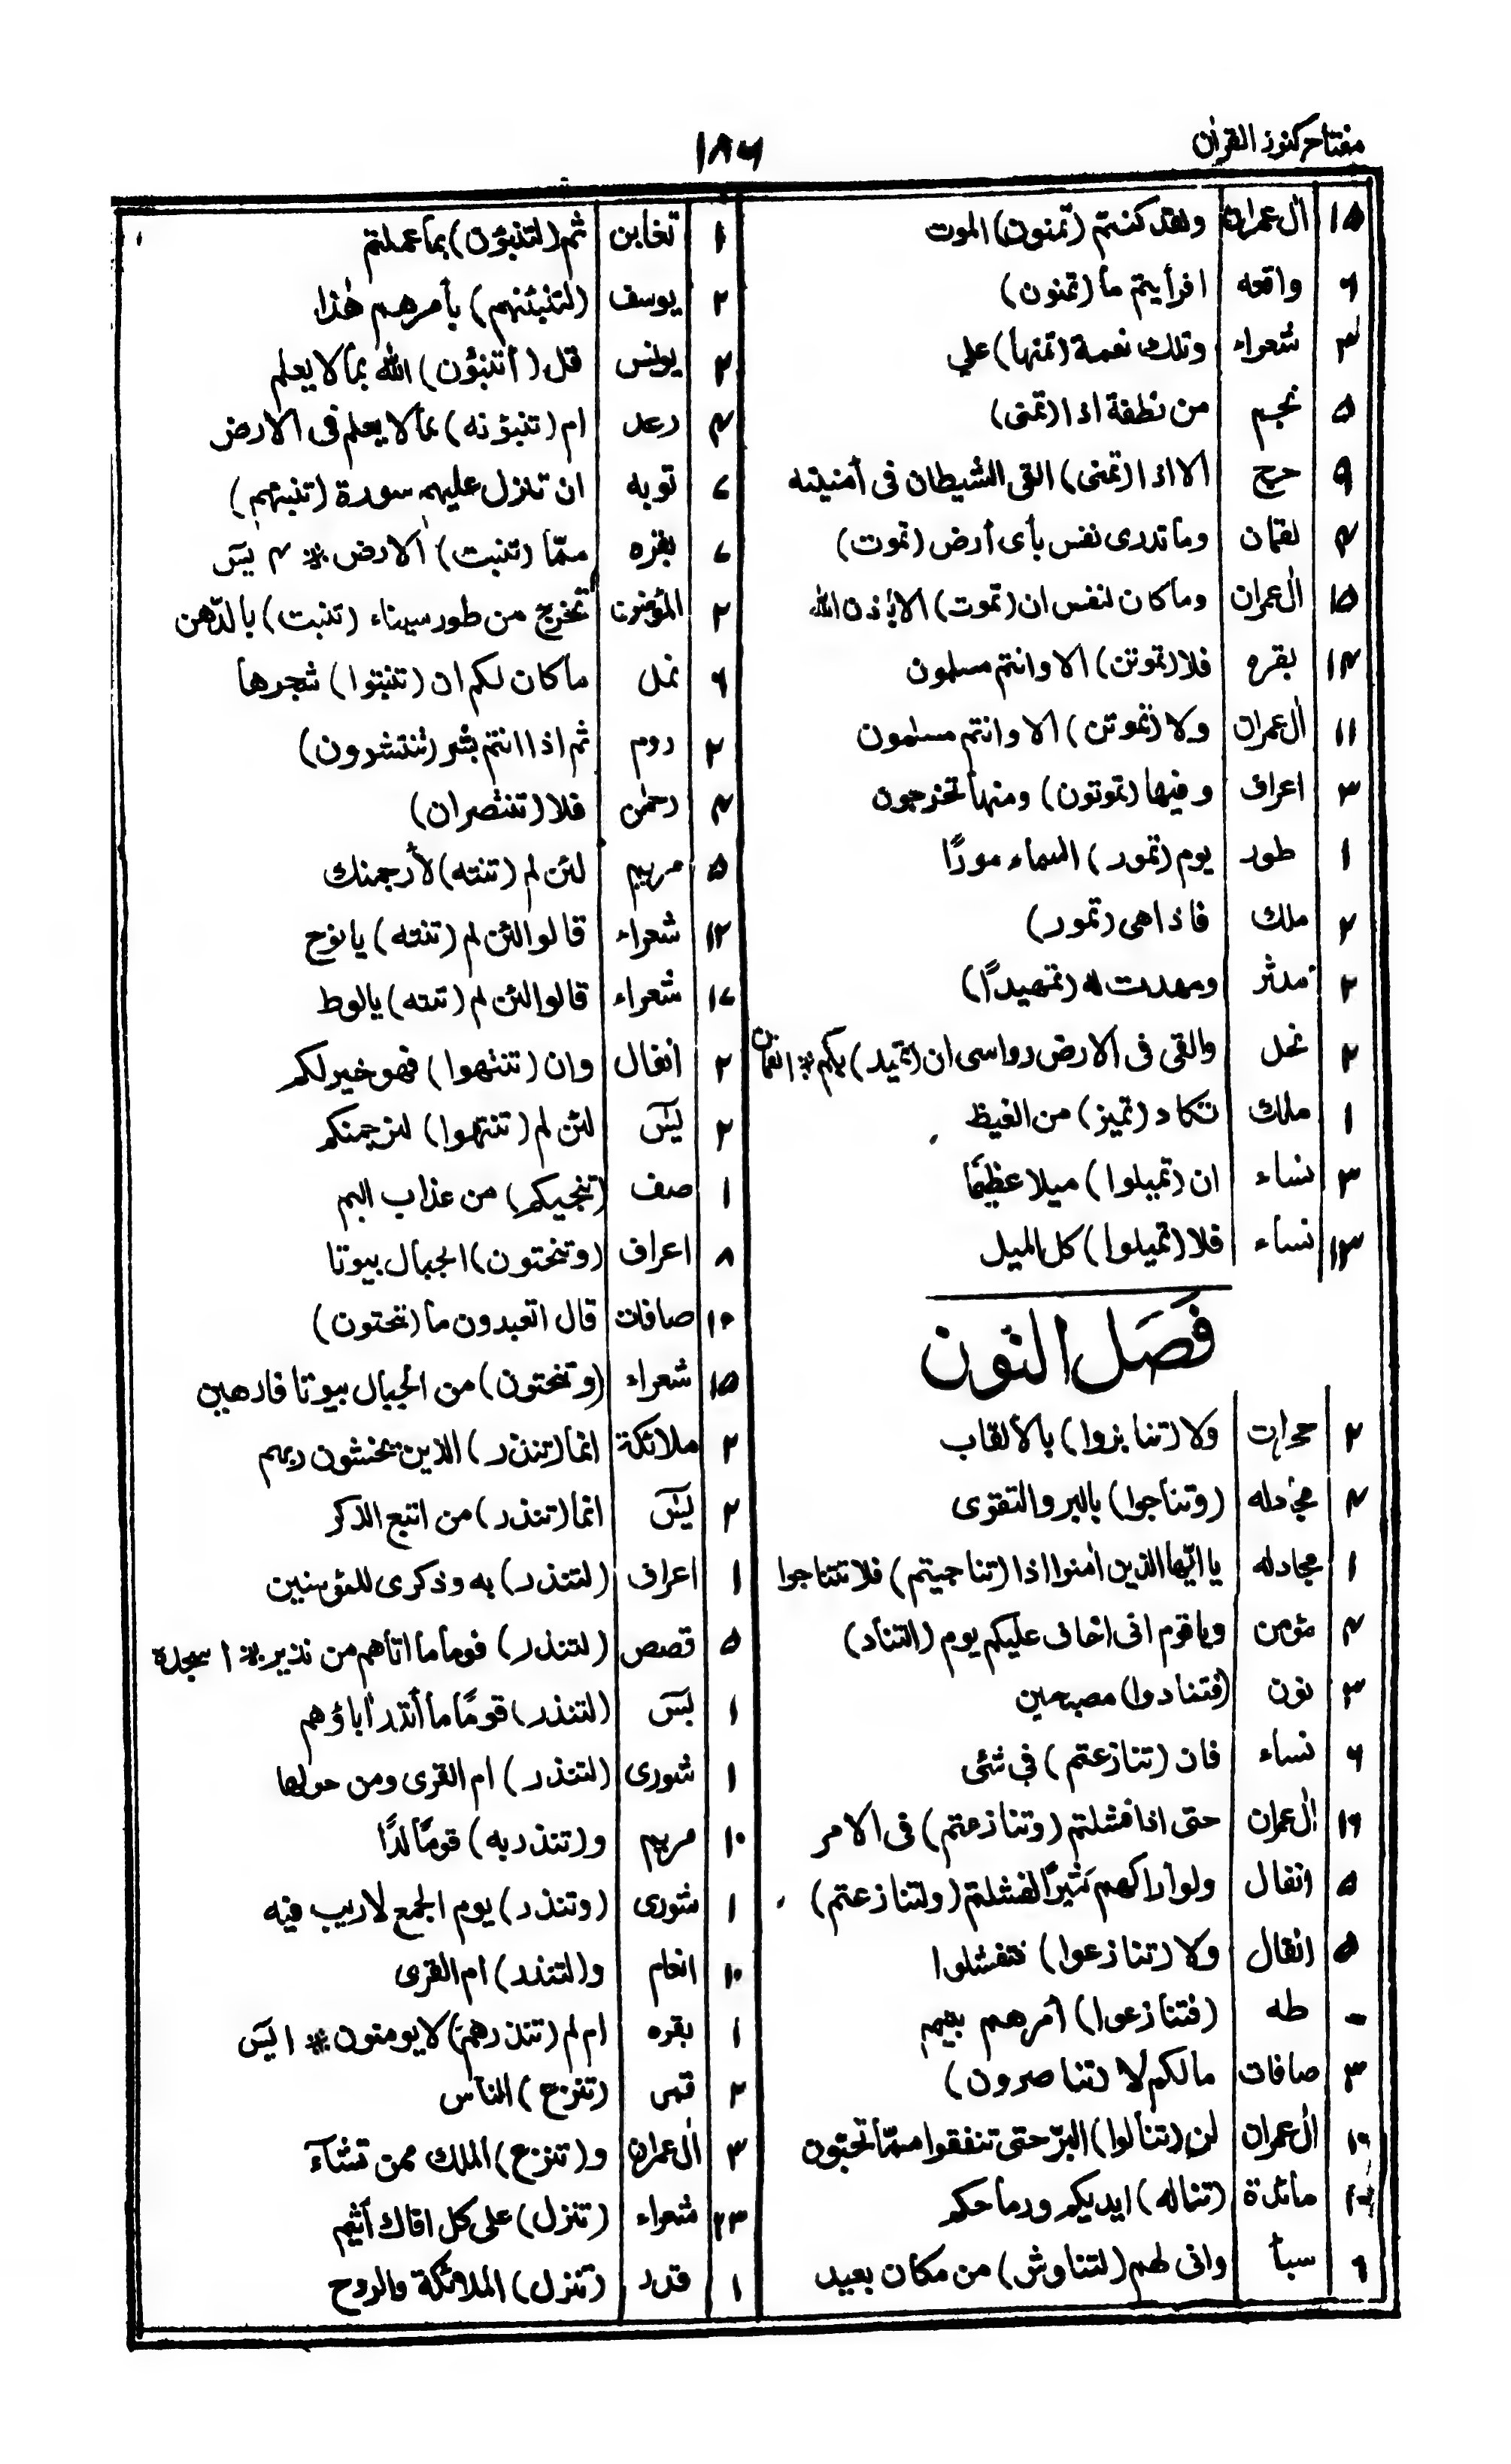 مفتاح كنوز القرآن
١٨٦
١٥ آل عمران ولقد كنتم (تمنون) الموت
٦ واقعه افرأيتم ما (تمنون)
٣ شعراء وتلك نعمة (تمنها) علي
٥ نجم من نطفة اذا (تمنى)
٩ حج الا اذا (تمنى) القى الشيطان فى أمنيته
٤ لقمان وما تدرى نفس بأى أرض (تموت)
١٥ آل عمران وما كان لنفس ان (تموت) الا بأذن الله
١٤ بقره فلا (تموتن) الا وانتم مسلمون
١١ آل عمران ولا (تموتن) الا وانتم مسلمون
٣ اعراف وفيها (تموتون) ومنها تخرجون
١ طور يوم (تمور) السماء مورًا
٢ ملك فاذا هى (تمور)
٢ مدثر ومهدت له (تمهيدًا)
٢ نحل والقى فى الارض رواسى ان (تميد) بكم * ا لقمان
١ ملك تكاد (تميز) من الغيظ
٣ نساء ان (تميلوا) ميلا عظيمًا
١٣ نساء فلا (تميلوا) كل الميل
فصل النون
٢ حجرات ولا (تنابزوا) بالألقاب
٢ مجادله (وتناجوا) بالبر والتقوى
١ مجادله يا ايها الذين آمنوا اذا (تناجيتم) فلا تتناجوا
٤ مؤمن وياقوم انى اخاف عليكم يوم (التناد)
٣ نون (فتنادوا) مصبحين
٦ نساء فان (تنازعتم) فى شئى
١٦ آل عمران حتى اذا فشلتم (وتنازعتم) فى الامر
٥ انفال ولو أراكهم كثيرًا لفشلتم (ولتنازعتم)
٥ انفال ولا (تنازعوا) فتفشلوا
طه (فتنازعوا) أمرهم بينهم
٣ صافات مالكم لا (تناصرون)
١٠ آل عمران لن (تنالوا) البرّ حتى تنفقوا ممّا تحبّون
مائدة (تناله) ايديكم ورماحكم
٦ سبأ وانى لهم (لتناوش) من مكان بعيد
١ تغابن ثم (لتنبؤن) بما عملتم
٢ يوسف (لتنبئنهم) بأمرهم هذا
٢ يونس قل (أتنبؤن) الله بما لا يعلم
٤ رعد ام (تنبؤنه) بما لا يعلم فى الارض
٧ توبه ان تنزل عليهم سورة (تنبئهم)
٧ بقره ممّا (تنبت) الارض * ٣ يسٓ
٢ المؤمنون تخرج من طور سيناء (تنبت) بالدّهن
٦ نمل ما كان لكم ان (تنبتوا) شجرها
٢ روم ثم اذا انتم بشر (تنتشرون)
٢ رحمٰن فلا (تنتصران)
٥ مريم لئن لم (تنته) لأرجمنك
١٢ شعراء قالوا لئن لم (تنته) يا نوح
١٧ شعراء قالوا لئن لم (تنته) يالوط
٢ انفال وان (تنتهوا) فهو خير لكم
٢ يسٓ لئن لم (تنتهوا) لنرجمنكم
١ صف (تنجيكم) من عذاب اليم
٨ اعراف (وتنحتون) الجبال بيوتا
١٠ صافات قال اتعبدون ما (تنحتون)
١٥ شعراء (وتنحتون) من الجبال بيوتا فارهين
٢ ملائكة انما (تنذر) الذين يخشون ربهم
٢ يسٓ انما (تنذر) من اتبع الذكر
١ اعراف (لتنذر) به وذكرى للمؤمنين
٥ قصص (لتنذر) قوما ما اتاهم من نذير * ١ سجدة
١ يسٓ (لتنذر) قومًا ما أنذر آباؤهم
١ شورى (لتنذر) ام القرى ومن حولها
١٠ مريم و(تنذر به) قومًا لدًّا
١ شورى (وتنذر) يوم الجمع لا ريب فيه
١٠ انعام و(لتنذر) ام القرى
١ بقره ام لم (تنذرهم) لا يومنون * ١ يسٓ
٢ قمر (تنزع) الناس
٣ آل عمران و(تنزع) الملك ممن تشآء
٢٣ شعراء (تنزل) على كل افاك أثيم
١ قدر (تنزل) الملائكة والروح